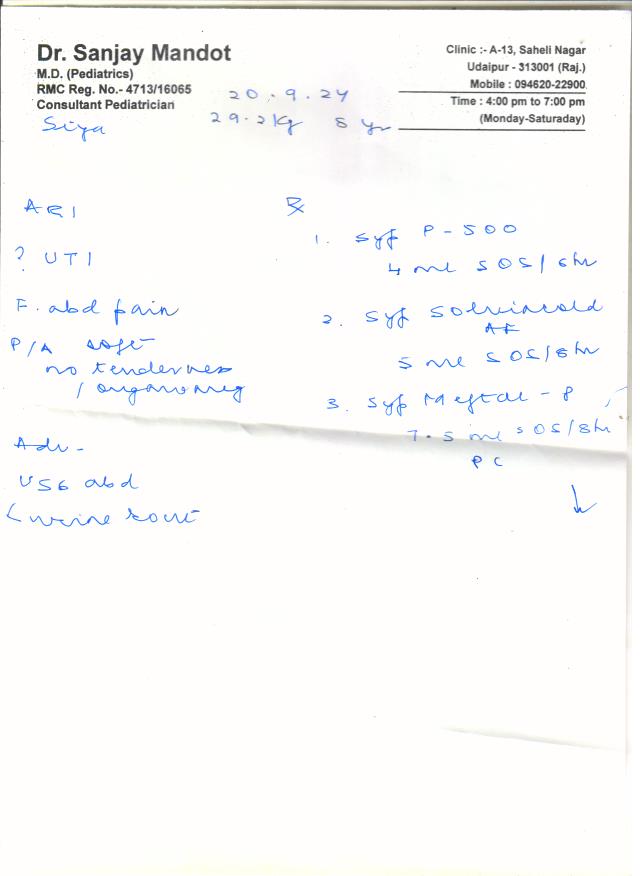 Dr. Sanjay Mandot
M.D. (Pediatrics)
RMC Reg. No.- 4713/16065
Consultant Pediatrician
Clinic :- A-13, Saheli Nagar
Udaipur - 313001 (Raj.)
Mobile : 094620-22900
Time : 4:00 pm to 7:00 pm
(Monday-Saturaday)
20.9.24
Siya 29.2 kg 8 yr
ARI
? UTI
F. abd pain
P/A soft
no tenderness
/ organomeg
Adv -
USG abd
urine rout
Rx
1. Syp P-500
4 ml SOS/6hr
2. Syp Solvincold
AF
5 ml SOS/8hr
3. Syp Meftal-P
7.5 ml SOS/8hr
PC